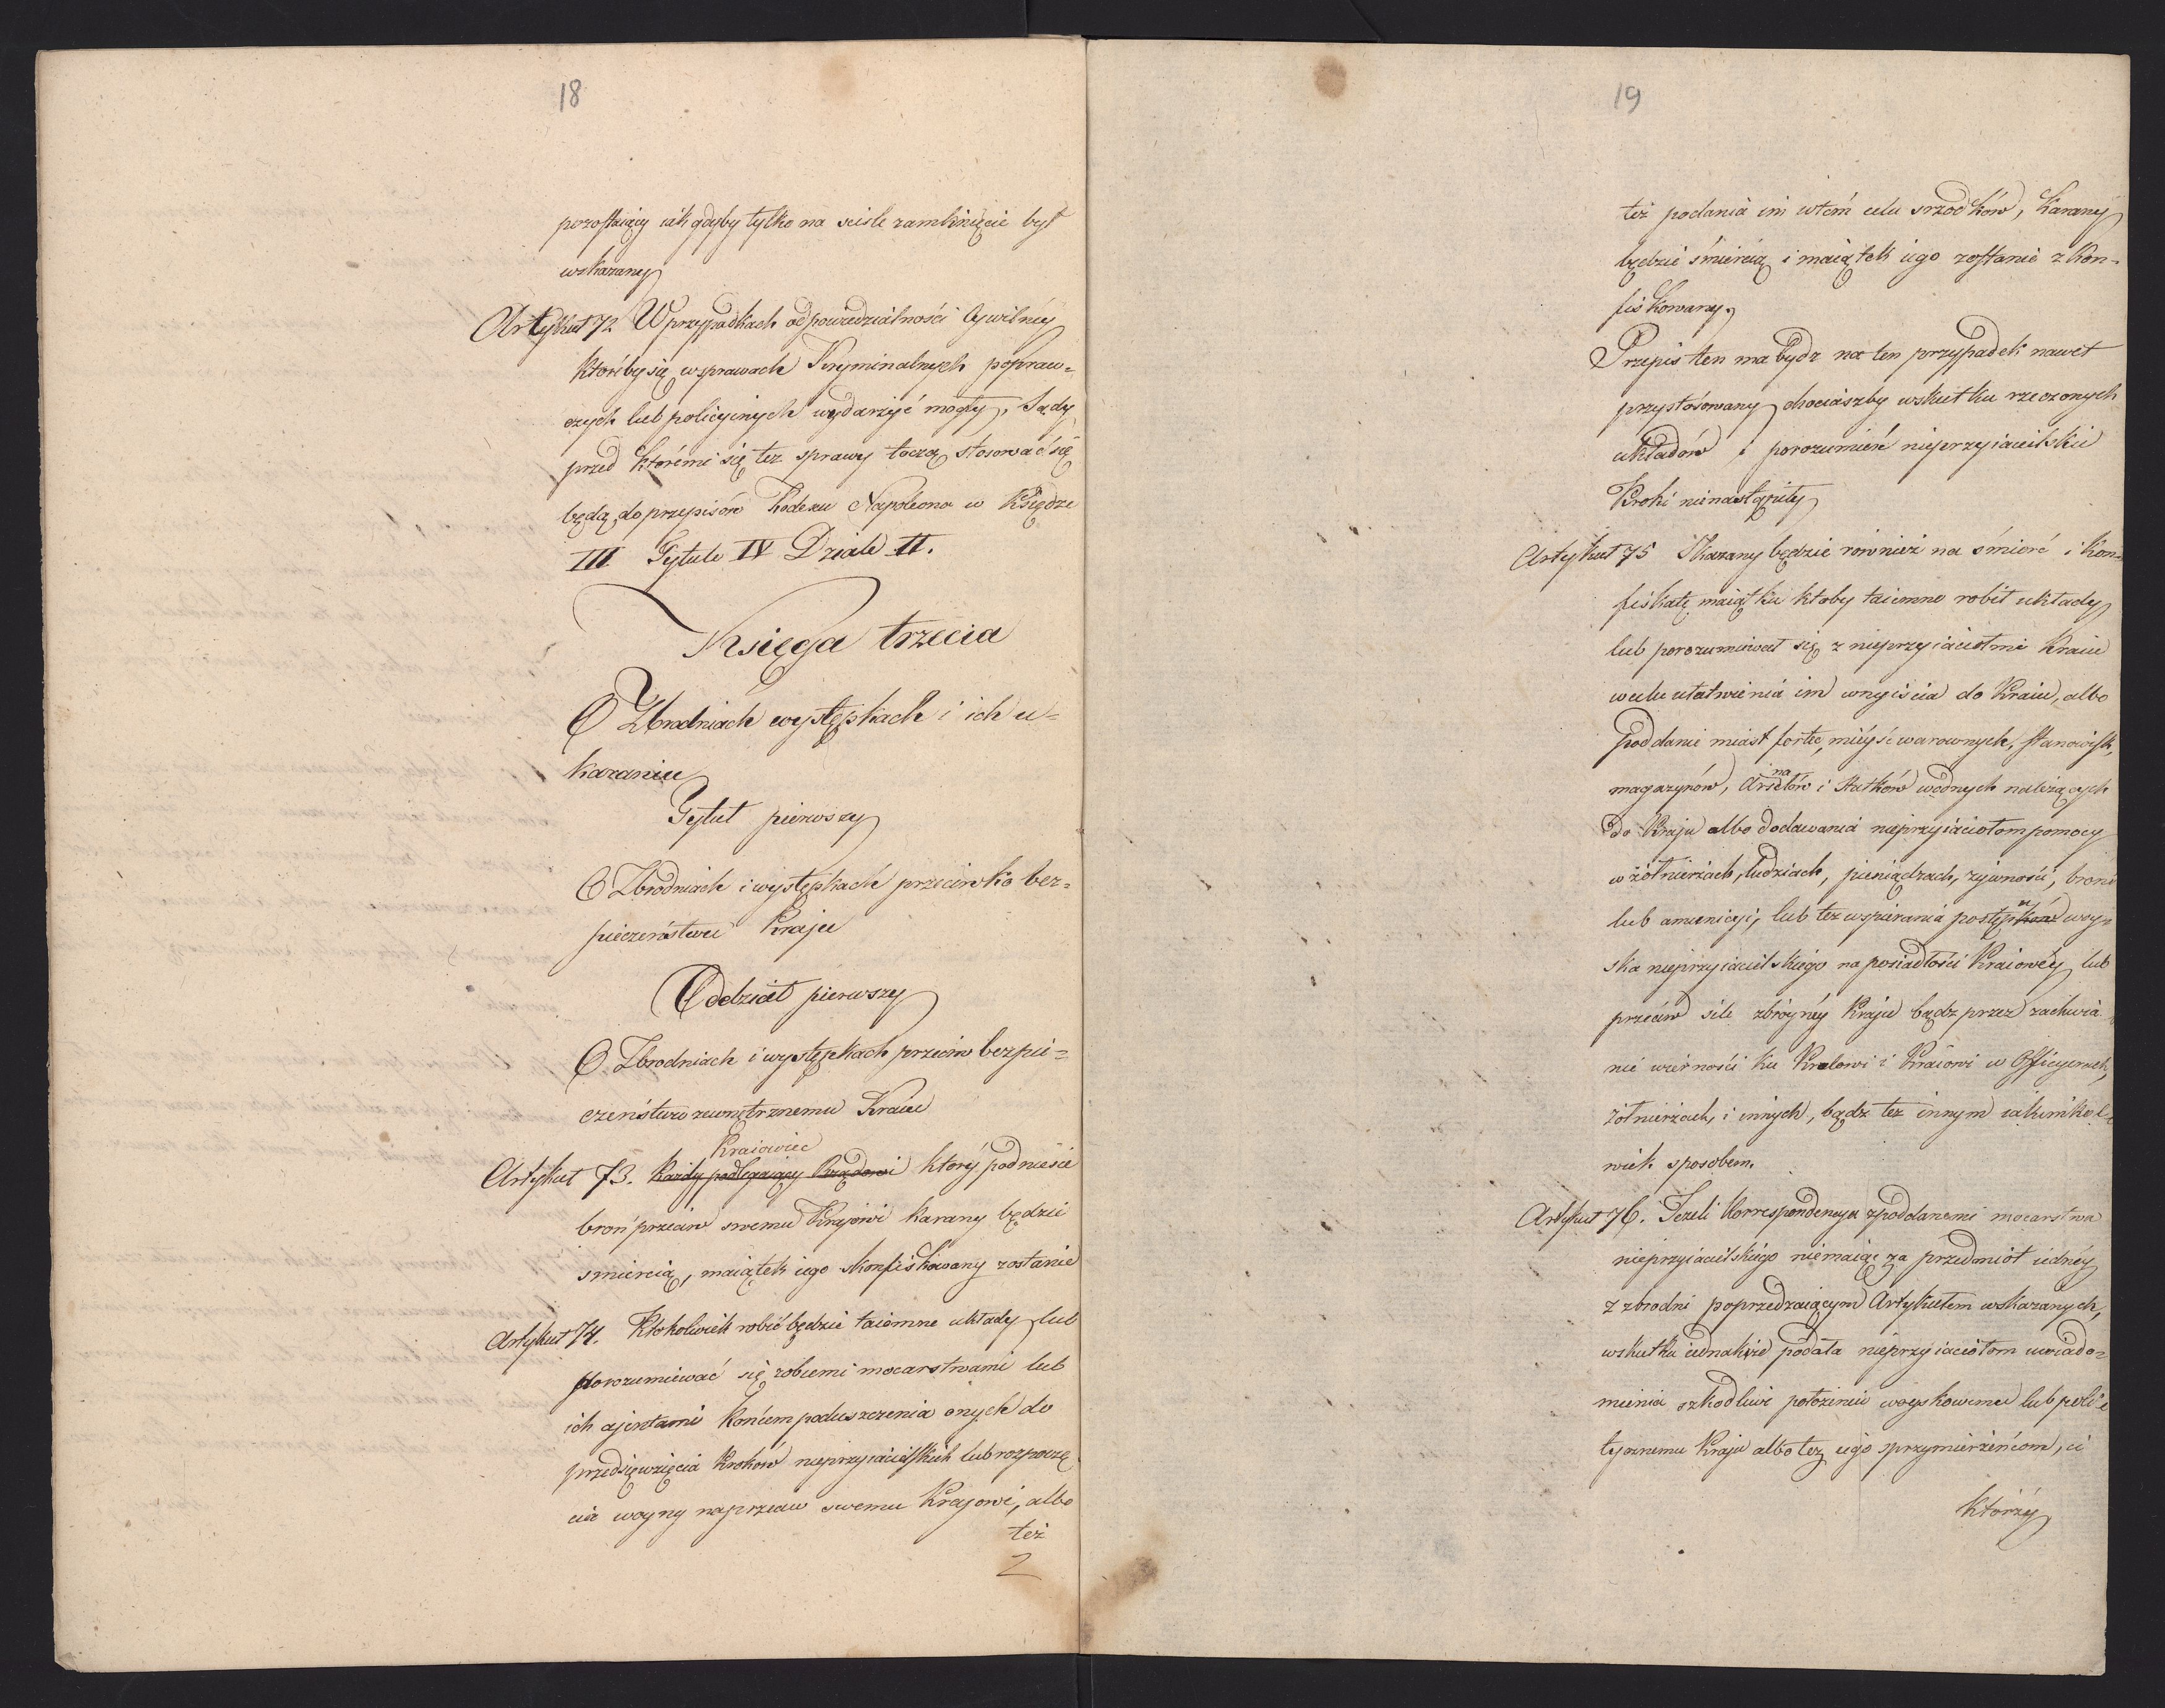 18
pozostaiący iak gdyby tylko na ścisłe zamknięcie był
wskazany
Artykuł 72 W przypadkach odpowiedzialności Cywilnéy
któréby się w sprawach Kryminalnych popraw=
czych lub policyinych wydarzyć mogły, Sądy
przed którémi się też sprawy toczą stosować się
będą do przepisów Kodexu Napoleona w Księdze
III Tytule IV Dziale II.
Księga trzecia
O Zbrodniach występkach i ich u=
karaniu
Tytuł pierwszy
O Zbrodniach i występkach przeciwko bez=
pieczeństwu Kraju
Oddział pierwszy
O Zbrodniach i występkach przeciw bezpie=
czeństwu zewnętrznemu Kraiu
Kraiowiec
Artykuł 73. Każdy podlegaiący Rządowi który podniesie
broń przeciw swemu Krajowi karany będzie
smiercią, maiątek iego skonfiskowany zostanie
Artykuł 74. Ktokolwiek robić będzie taiemne układy lub
porozumiewać się z obcemi mocarstwami lub
ich ajentami końcem poduszczenia onych do
przedsięwzięcia kroków nieprzyiacielskich lub rozpoczę
cia woyny naprzeciw swemu Krajowi, albo
też
2
19
też podania im w tém celu srzodków, karany
będzie śmiercią i maiątek iego zostanie zkon=
fiskowany.
Przepis ten ma bydz na ten przypadek nawet
przystósowany chociaszby wskutku rzeczonych
układów i porozumień nieprzyiacielskie
Kroki nienastąpiły
Artykuł 75 Skazany będzie również na śmierć i kon=
fiskatę maiątku ktoby taiemne robił układy
lub porozumiewał się z nieprzyiaciołmi Kraiu
w celu ułatwienia im wnyiścia do Kraiu, albo
poddanie miast fortec, mieyśc warownych, stanowisk,
na
magazynów, Arsełów i statków wodnych należących
do Kraju albo dodawania nieprzyiaciołom pomocy
w żołnierzach, ludziach, pieniądzach, żywności, broni
lub amunicyi, lub też wspierania postępków woy=
ska nieprzyiacielskiego na posiadłości Kraiowéy lub
przeciw sile zbróynéy Kraju bądz przez zachwia
nie wierności ku Królowi i Kraiowi w Officyerach,
żołnierzach, i innych, bądz też innym iakimkol
wiek sposobem.
Artykuł 76. Jeżeli Korrespondencya z poddanemi mocarstwa
nieprzyiacielskiego niemaiąc za przedmiot iednéy
z zbrodni poprzedzaiącym Artykułem wskazanych,
wskutku iednakże podała nieprzyiaciołom uwiado=
mienia szkodliwe położeniu woyskowemu lub poli
tycznemu Kraju albo też iego sprzymierzeńcom, ci
którzy